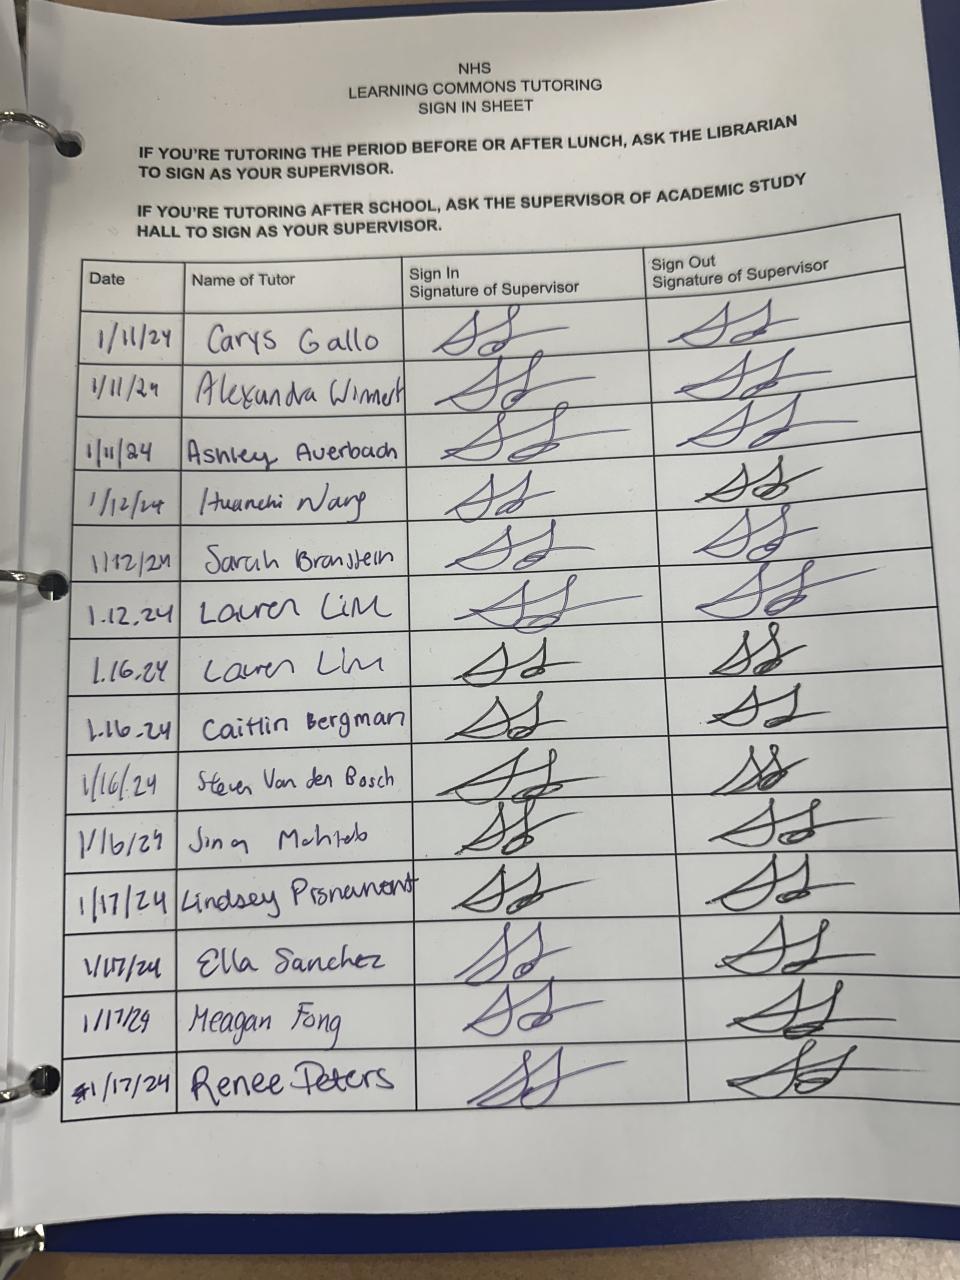 NHS
LEARNING COMMONS TUTORING
SIGN IN SHEET
IF YOU'RE TUTORING THE PERIOD BEFORE OR AFTER LUNCH, ASK THE LIBRARIAN
TO SIGN AS YOUR SUPERVISOR.
IF YOU'RE TUTORING AFTER SCHOOL, ASK THE SUPERVISOR OF ACADEMIC STUDY
HALL TO SIGN AS YOUR SUPERVISOR.
Date Name of Tutor Sign In Signature of Supervisor Sign Out Signature of Supervisor
1/11/24 Carys Gallo
1/11/24 Alexandra
1/11/24 Ashley Averbach
1/12/24 Huanchi Wang
1/12/24 Sarah Bronstein
1.12.24 Lauren Lim
1.16.24 Lauren Lim
1.16.24 Caitlin Bergman
1/16/24 Steven Van den Bosch
1/16/24 Mahtab
1/17/24 Lindsey
1/17/24 Ella Sanchez
1/17/24 Meagan Fong
1/17/24 Renee Peters